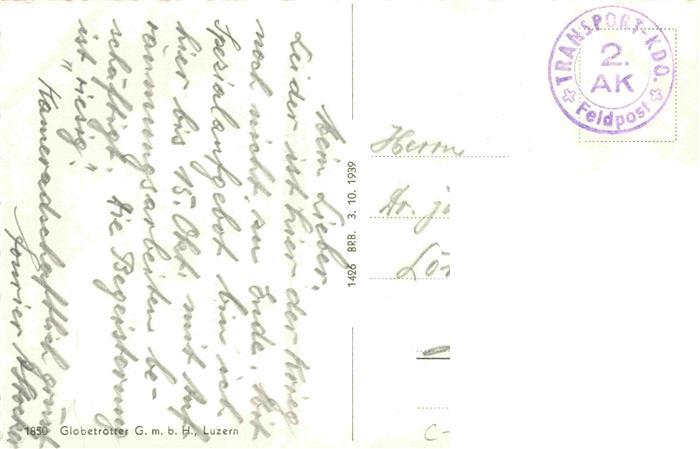 Mein Lieber,
Leider ist hier der Krieg
noch nicht zu Ende. Mit
Spezialaufgebot bin ich
hier bis 15. Okt. mit Auf-
räumungsarbeiten be-
schäftigt. Die Begeisterung
ist "riesig."
Kameradschaftlich grüsst
Fourier
1850 Globetrotter G. m. b. H., Luzern
1426 BRB. 3. 10. 1939
TRANSPORT-KDO.
2.
AK
Feldpost
Herrn
Dr.